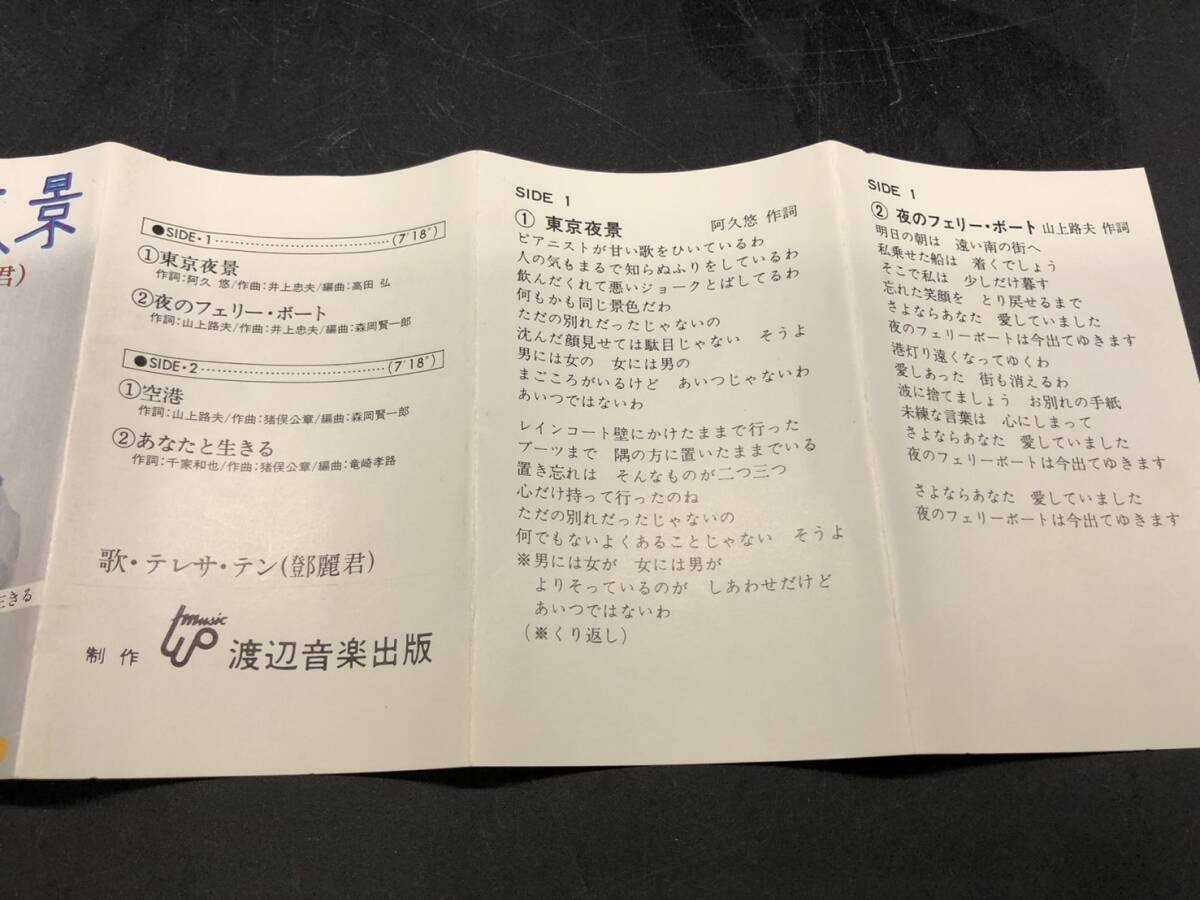 景
君)
生きる
●SIDE・1 (7'18")
①東京夜景
作詞:阿久 悠/作曲:井上忠夫/編曲:高田 弘
②夜のフェリー・ボート
作詞:山上路夫/作曲:井上忠夫/編曲:森岡賢一郎
●SIDE・2 (7'18")
①空港
作詞:山上路夫/作曲:猪俣公章/編曲:森岡賢一郎
②あなたと生きる
作詞:千家和也/作曲:猪俣公章/編曲:竜崎孝路
歌・テレサ・テン(鄧麗君)
制作 music 渡辺音楽出版
SIDE 1
① 東京夜景 阿久悠 作詞
ピアニストが甘い歌をひいているわ
人の気もまるで知らぬふりをしているわ
飲んだくれて悪いジョークとばしてるわ
何もかも同じ景色だわ
ただの別れだったじゃないの
沈んだ顔見せては駄目じゃない そうよ
男には女の 女には男の
まごころがいるけど あいつじゃないわ
あいつではないわ
レインコート壁にかけたままで行った
ブーツまで 隅の方に置いたままでいる
置き忘れは そんなものが二つ三つ
心だけ持って行ったのね
ただの別れだったじゃないの
何でもないよくあることじゃない そうよ
※男には女が 女には男が
よりそっているのが しあわせだけど
あいつではないわ
(※くり返し)
SIDE 1
② 夜のフェリー・ボート 山上路夫 作詞
明日の朝は 遠い南の街へ
私乗せた船は 着くでしょう
そこで私は 少しだけ暮す
忘れた笑顔を とり戻せるまで
さよならあなた 愛していました
夜のフェリーボートは今出てゆきます
港灯り遠くなってゆくわ
愛しあった 街も消えるわ
波に捨てましょう お別れの手紙
未練な言葉は 心にしまって
さよならあなた 愛していました
夜のフェリーボートは今出てゆきます
さよならあなた 愛していました
夜のフェリーボートは今出てゆきます